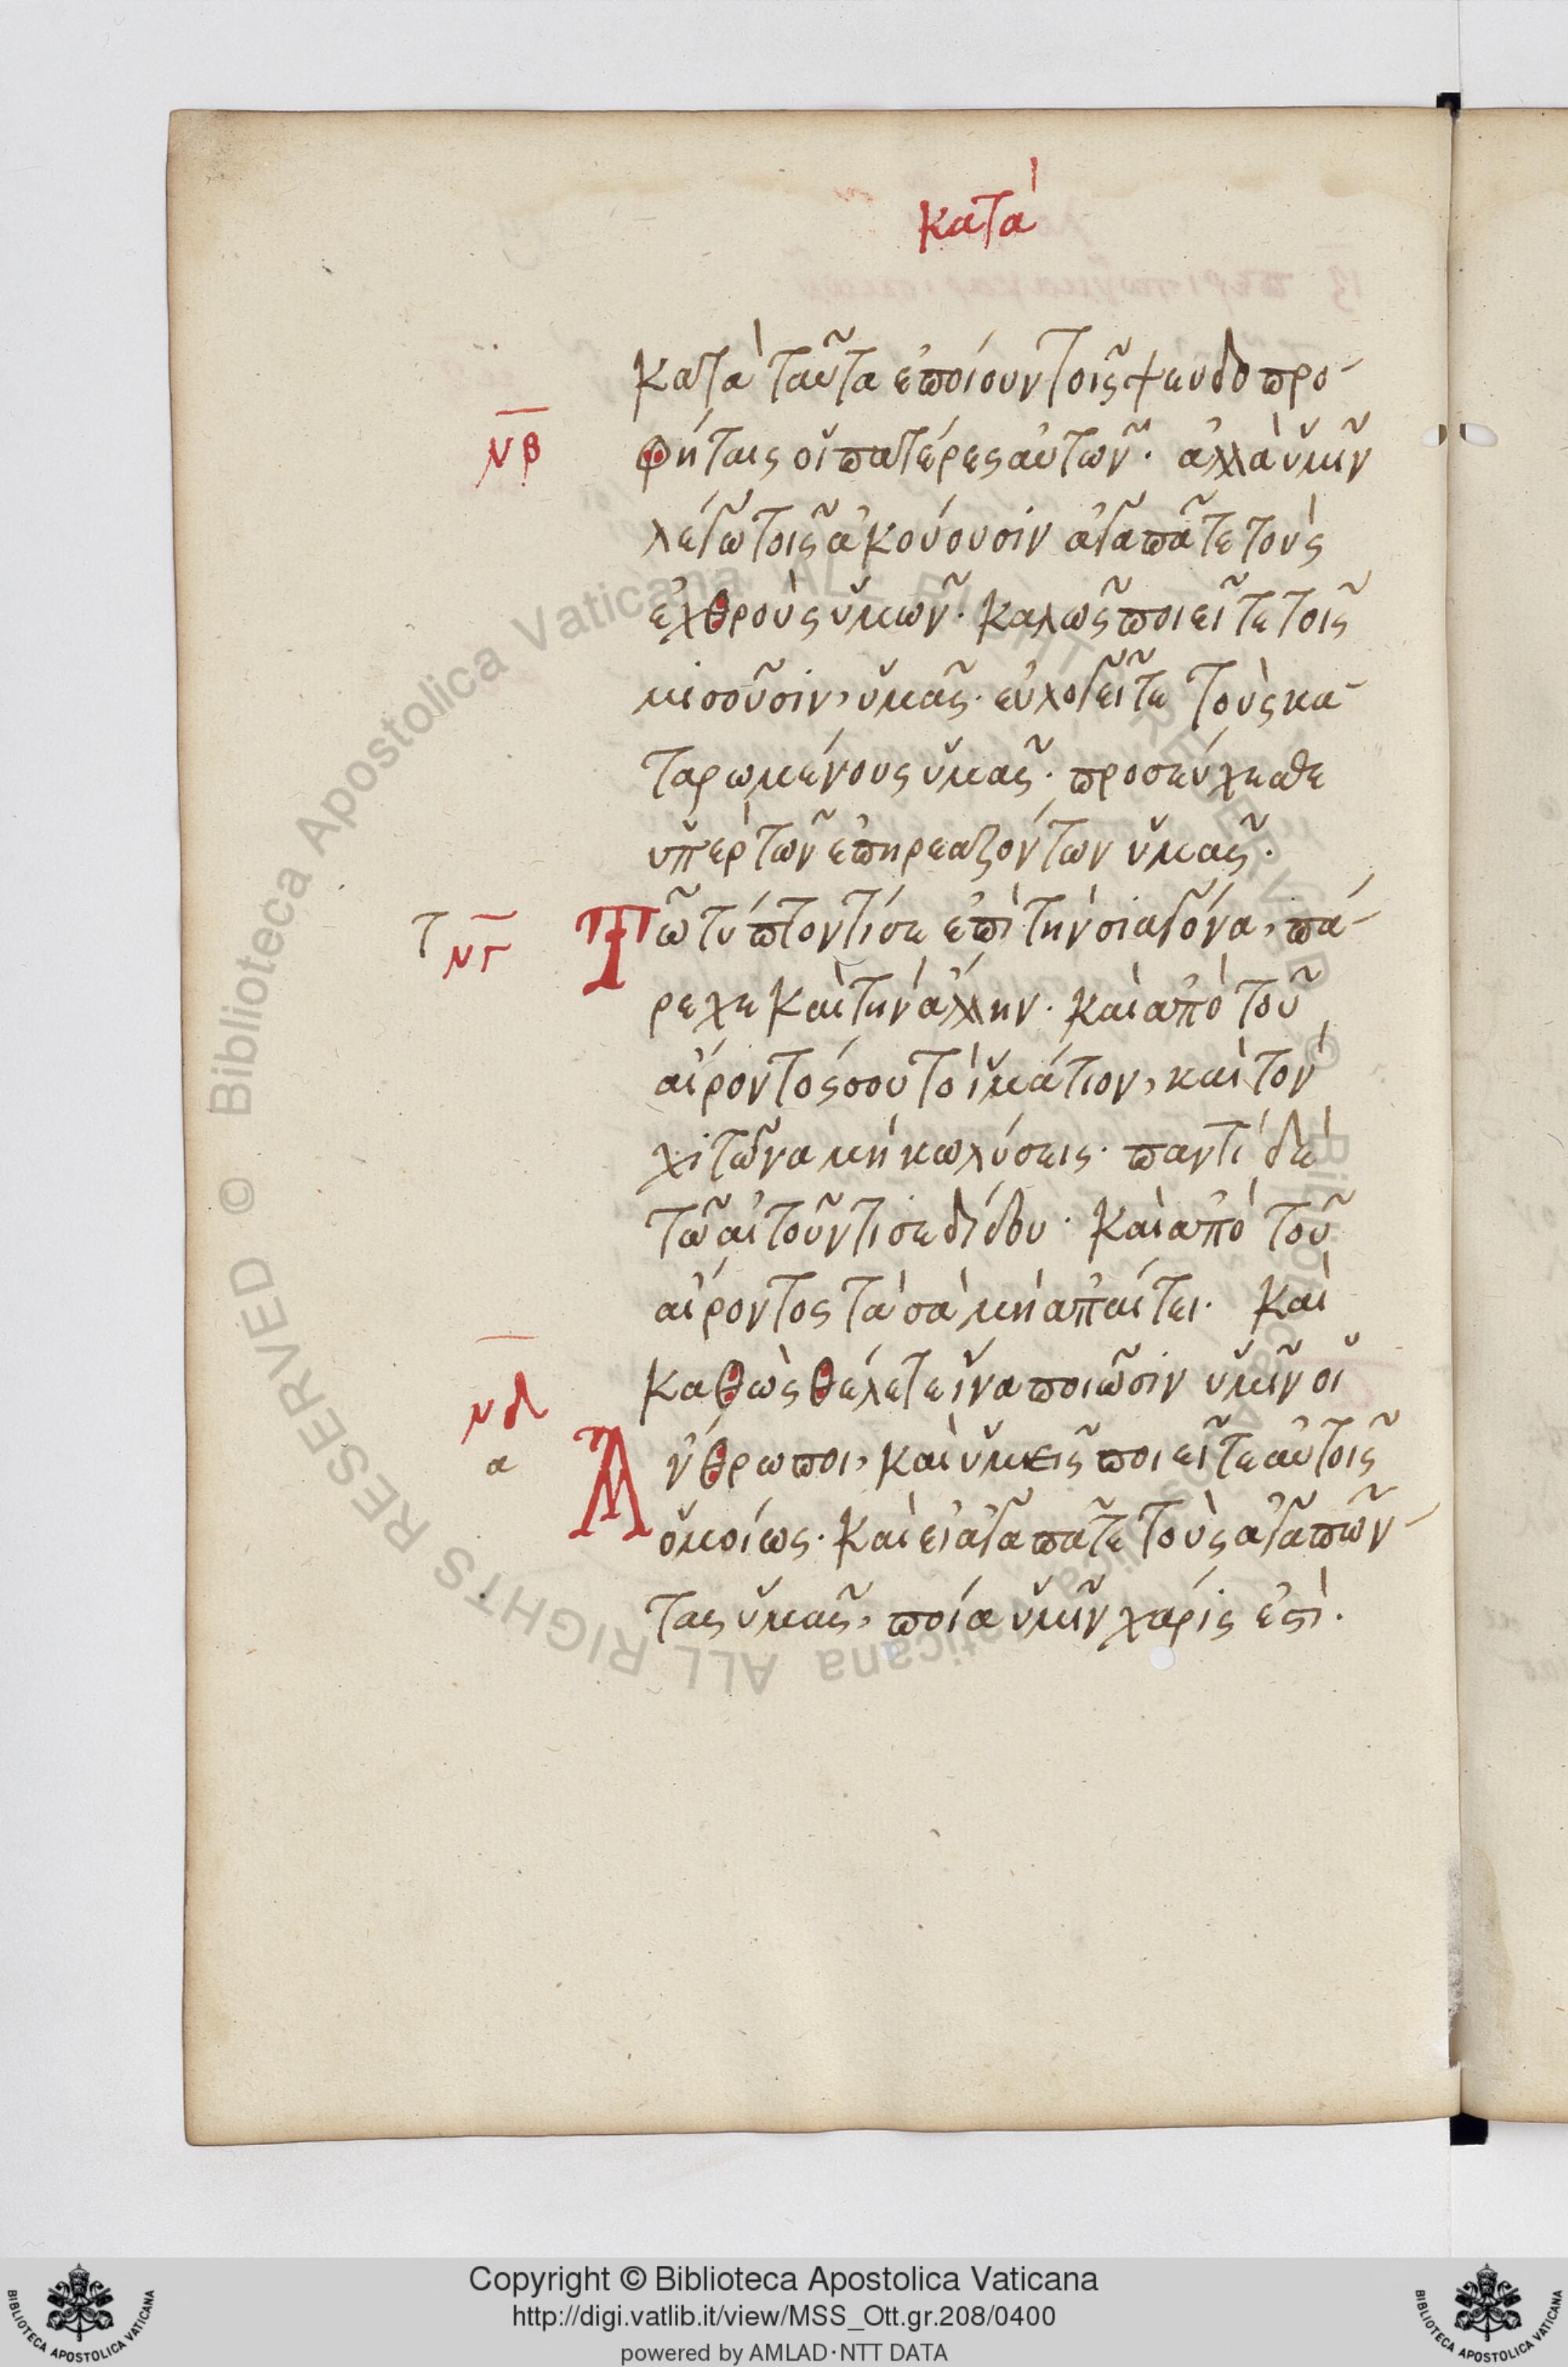 κατὰ
κατὰ ταῦτα ἐποίουν τοῖς ψευδοπρο-
νβ
φήταις οἱ πατέρες αὐτῶν. ἀλλὰ ὑμῖν
λέγω τοῖς ἀκούουσιν ἀγαπᾶτε τοὺς
ἐχθροὺς ὑμῶν. καλῶς ποιεῖτε τοῖς
μισοῦσιν, ὑμᾶς. εὐλογεῖτε τοὺς κα-
ταρωμένους ὑμᾶς. προσεύχεσθε
ὑπὲρ τῶν ἐπηρεαζόντων ὑμᾶς.
τ νγ
Τῶ τύπτοντί σε ἐπὶ τὴν σιαγόνα, πά-
ρεχε καὶ τὴν ἄλλην. καὶ ἀπὸ τοῦ
αἴροντός σου τὸ ἱμάτιον, καὶ τὸν
χιτῶνα μὴ κωλύσεις. παντὶ δὲ
τῶ αἰτοῦντι σε δίδου. καὶ ἀπὸ τοῦ
αἴροντος τὰ σὰ μὴ ἀπαίτει. καὶ
νδ
καθὼς θέλετε ἵνα ποιῶσιν ὑμῖν οἱ
α
Ἄνθρωποι, καὶ ὑμεῖς ποιεῖτε αὐτοῖς
ὁμοίως. καὶ εἰ ἀγαπᾶτε τοὺς ἀγαπῶν-
τας ὑμᾶς, ποία ὑμῖν χάρις ἐστί.
© Biblioteca Apostolica Vaticana ALL RIGHTS RESERVED © Biblioteca Apostolica Vaticana ALL RIGHTS RESERVED
Copyright © Biblioteca Apostolica Vaticana
http://digi.vatlib.it/view/MSS_Ott.gr.208/0400
powered by AMLAD·NTT DATA
BIBLIOTECA APOSTOLICA VATICANA
BIBLIOTECA APOSTOLICA VATICANA